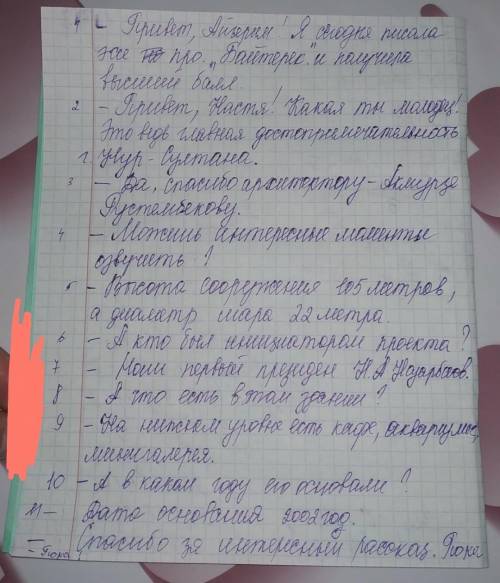 1 - Привет, Айгерим! Я сегодня писала
эссе про "Байтерек" и получила
высший балл.
2 - Привет, Настя! Какая ты молодец!
Это ведь главная достопримечательность
г. Нур-Султана.
3 - Да, спасибо архитектору - Акмурзе
Рустембекову.
4 - Можешь интересные моменты
озвучить?
5 - Высота сооружения 105 метров,
а диаметр шара 22 метра.
6 - А кто был инициатором проекта?
7 - Наш первый президен Н.А Назарбаев.
8 - А что есть в этом здании?
9 - На нижнем уровне есть кафе, аквариумы,
минигалерея.
10 - А в каком году его основали?
11 - Дата основания 2002 год.
Спасибо за интересный рассказ. Пока
- Пока